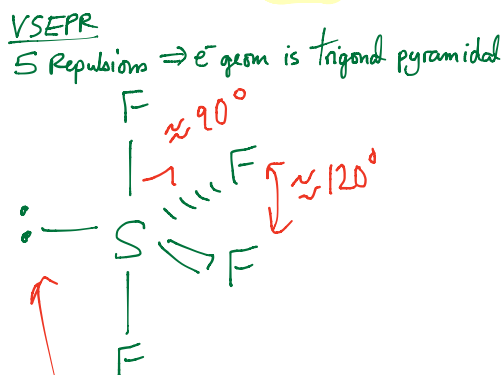 VSEPR
5 Repulsions ⇒ e⁻ geom is trigonal pyramidal
F
≈90°
F
≈120°
: S
F
F